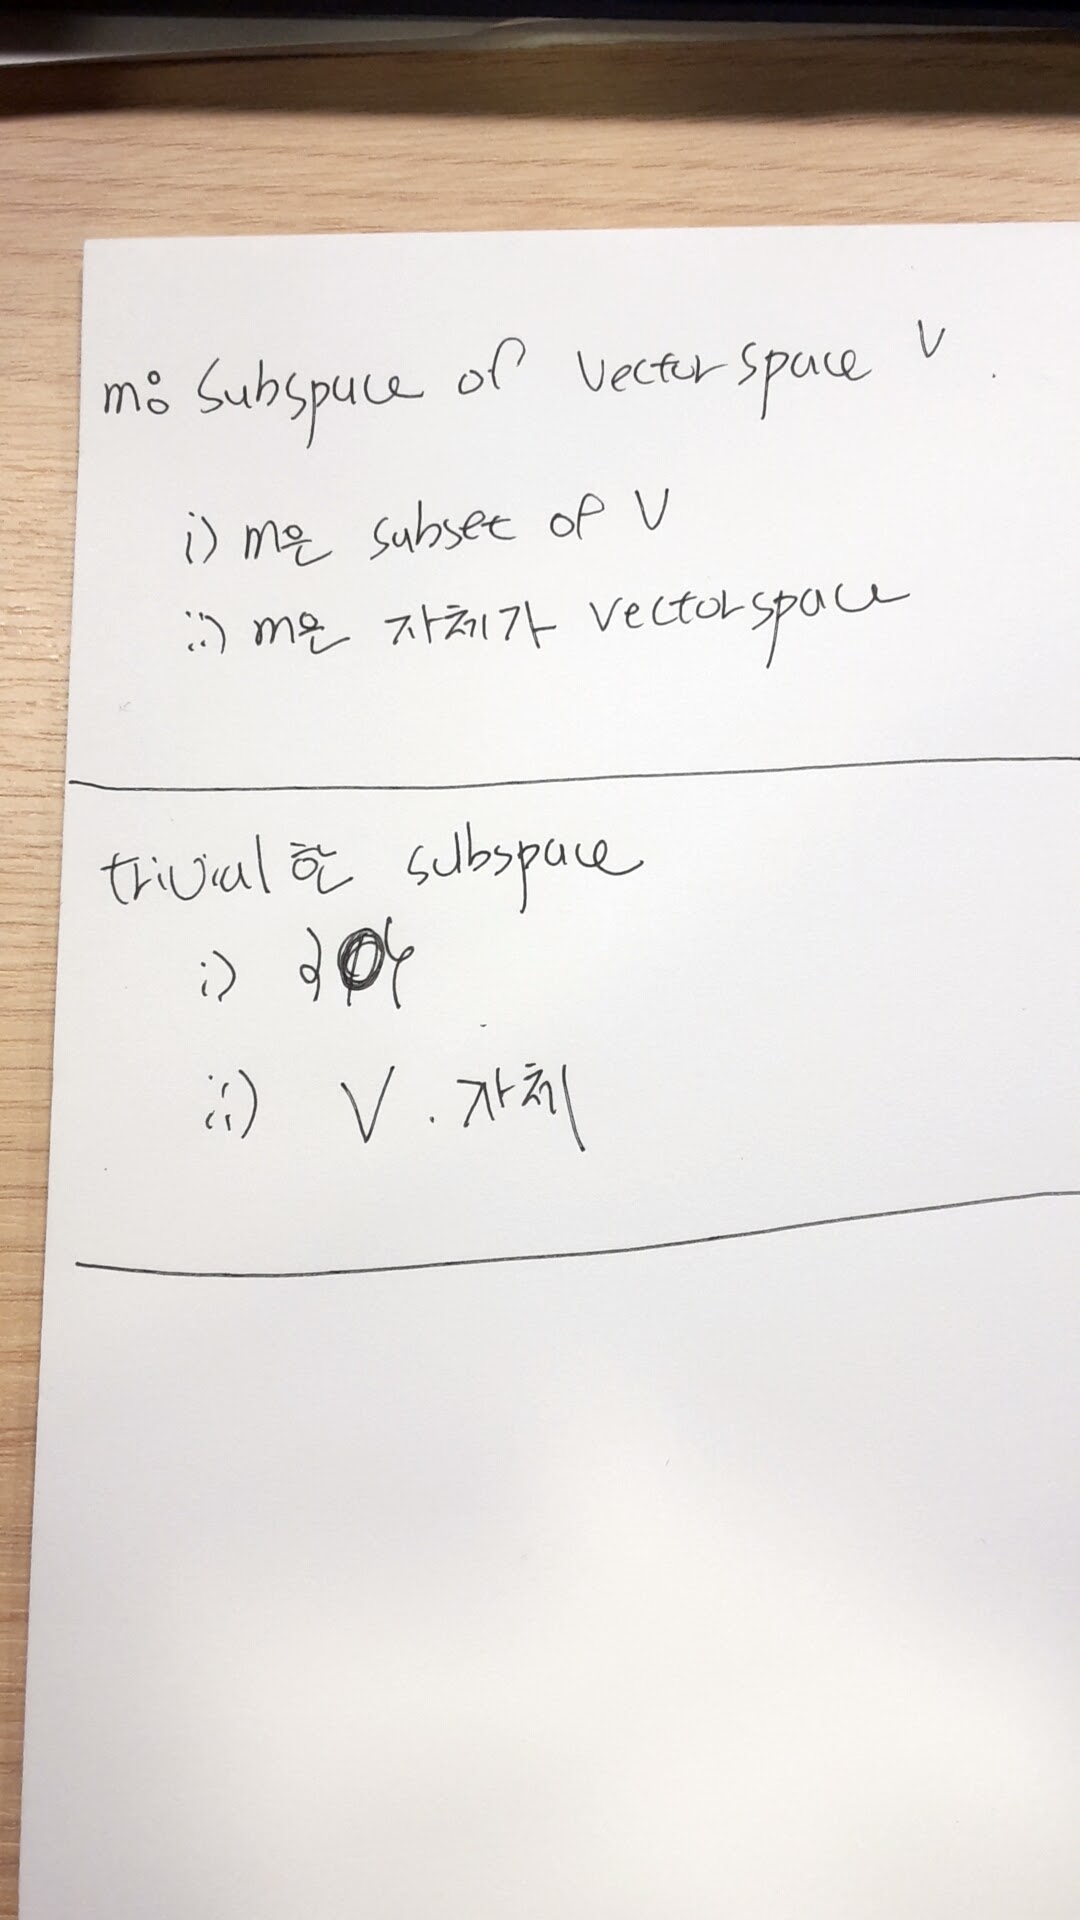 m: Subspace of vector space V.
i) m은 subset of V
ii) m은 자체가 vector space
trivial한 subspace
i) {0}
ii) V. 자체